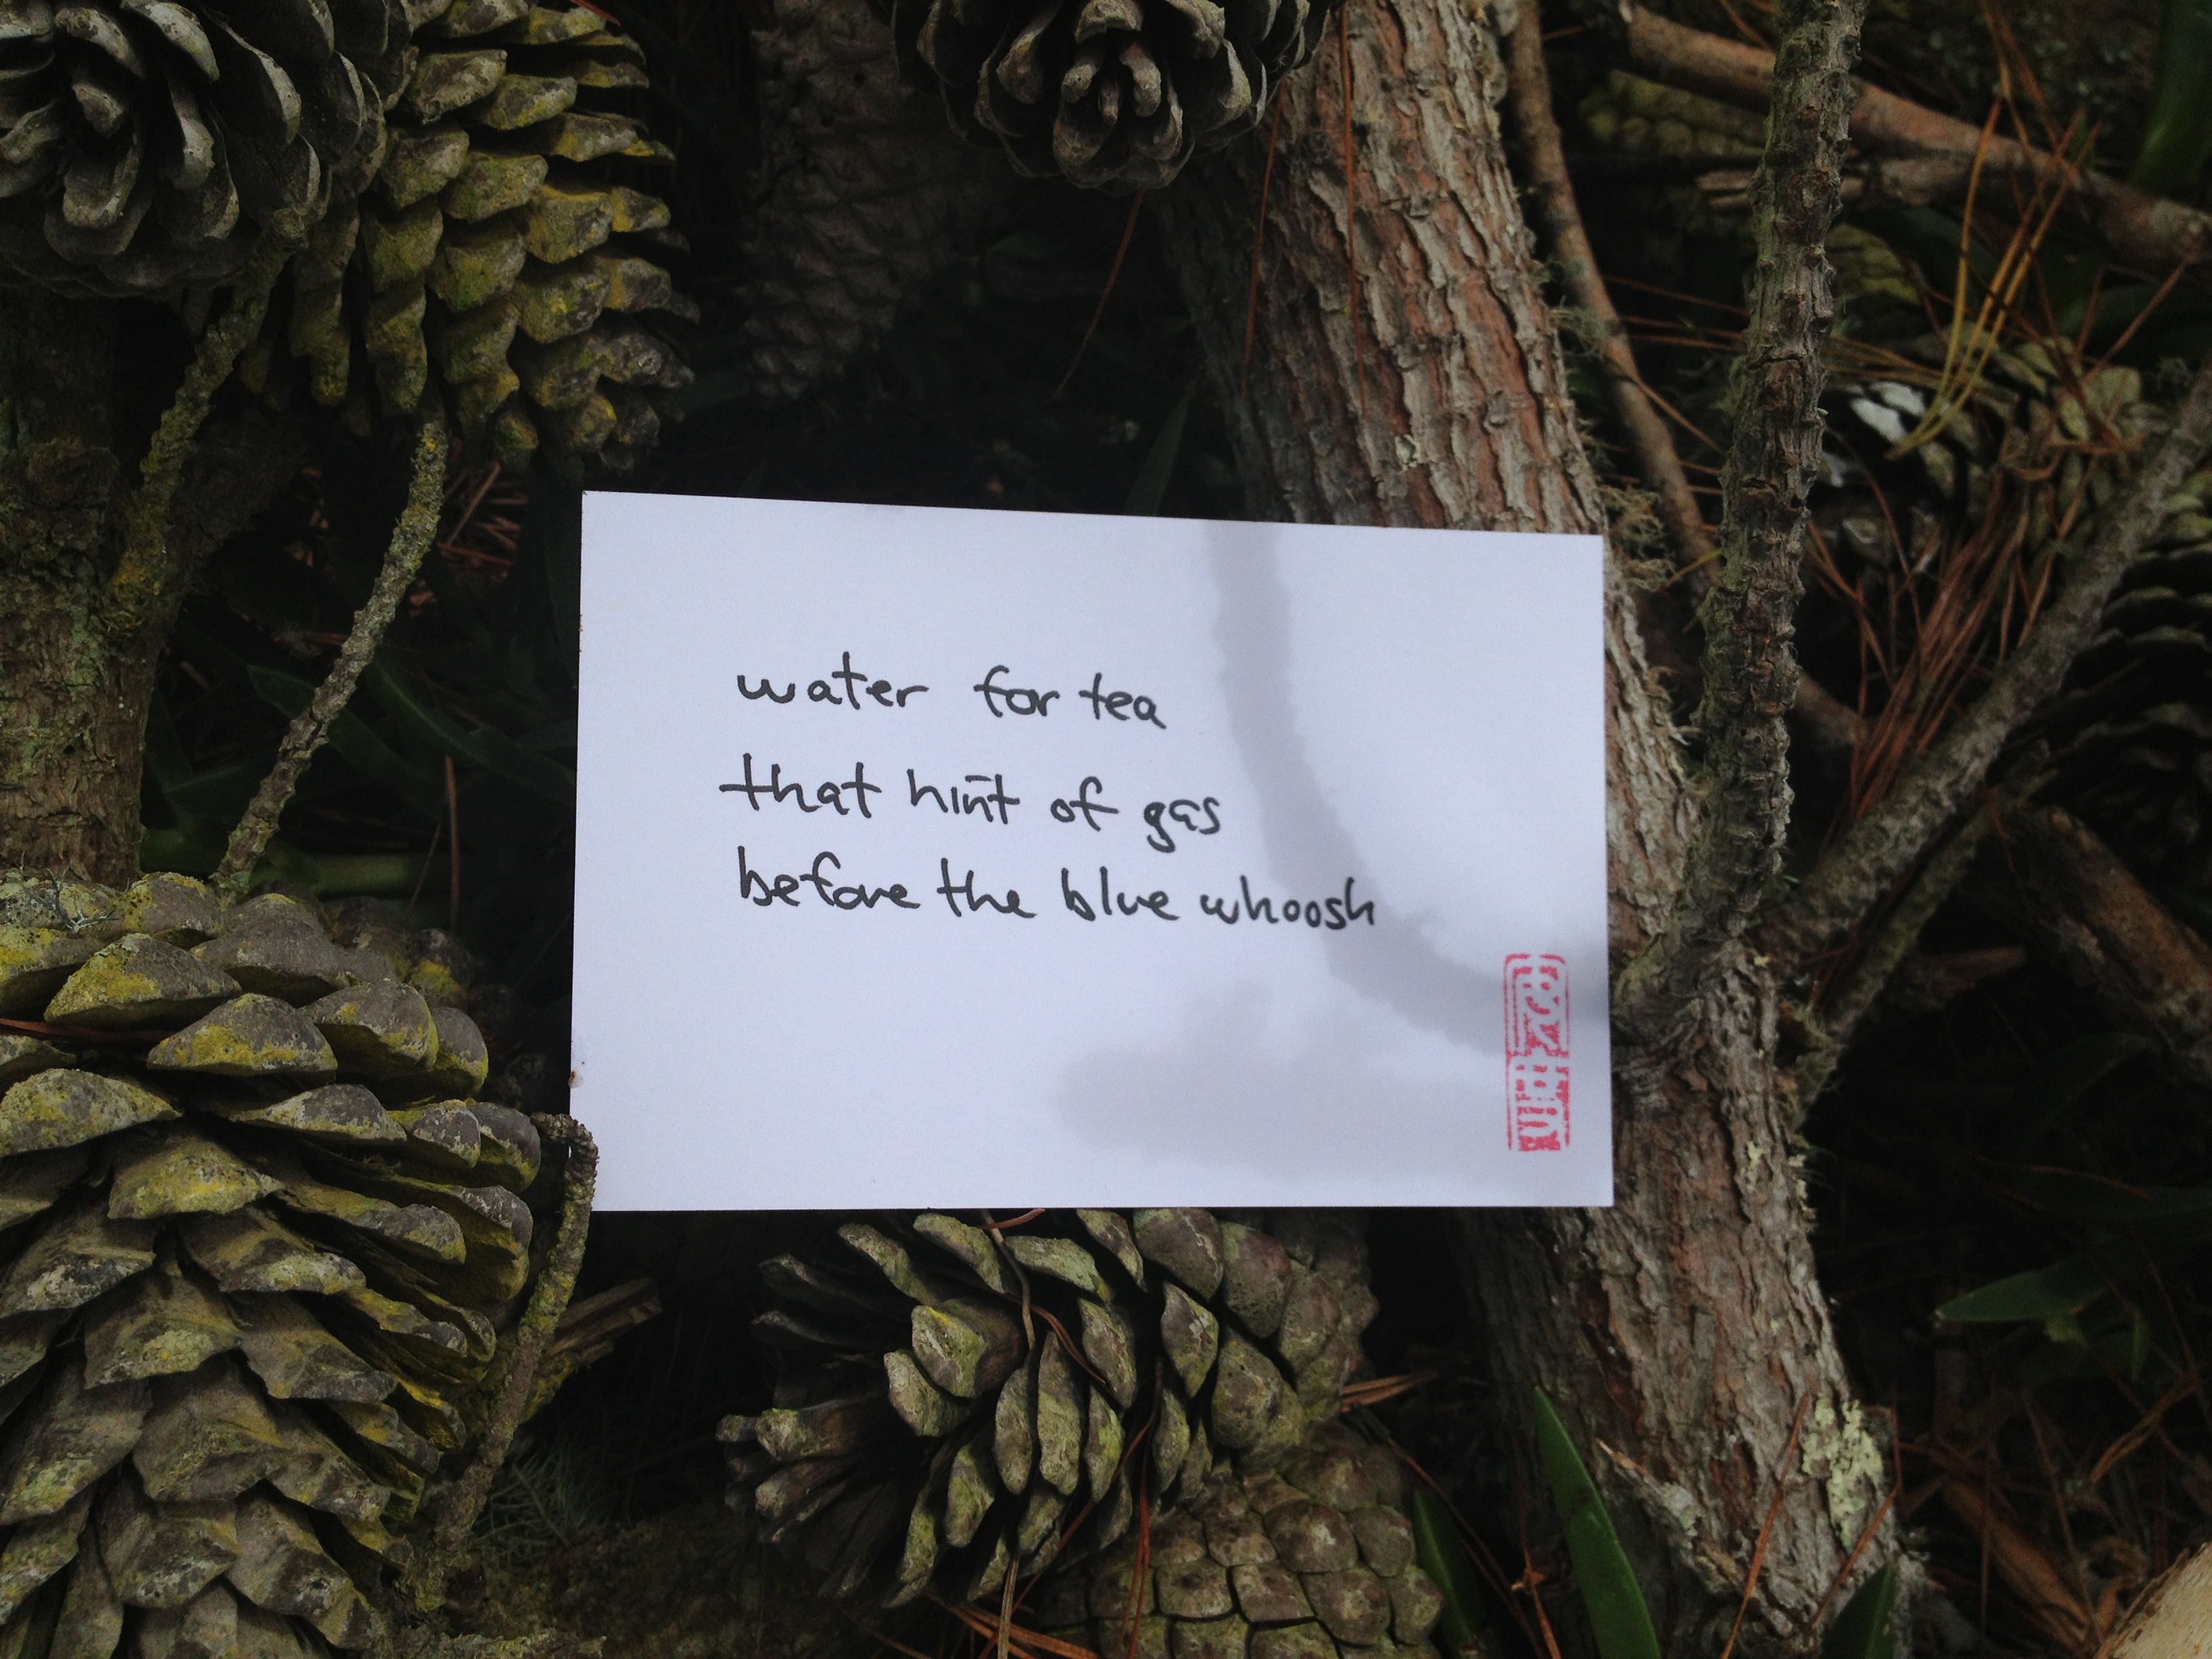 water for tea
that hint of gas
before the blue whoosh